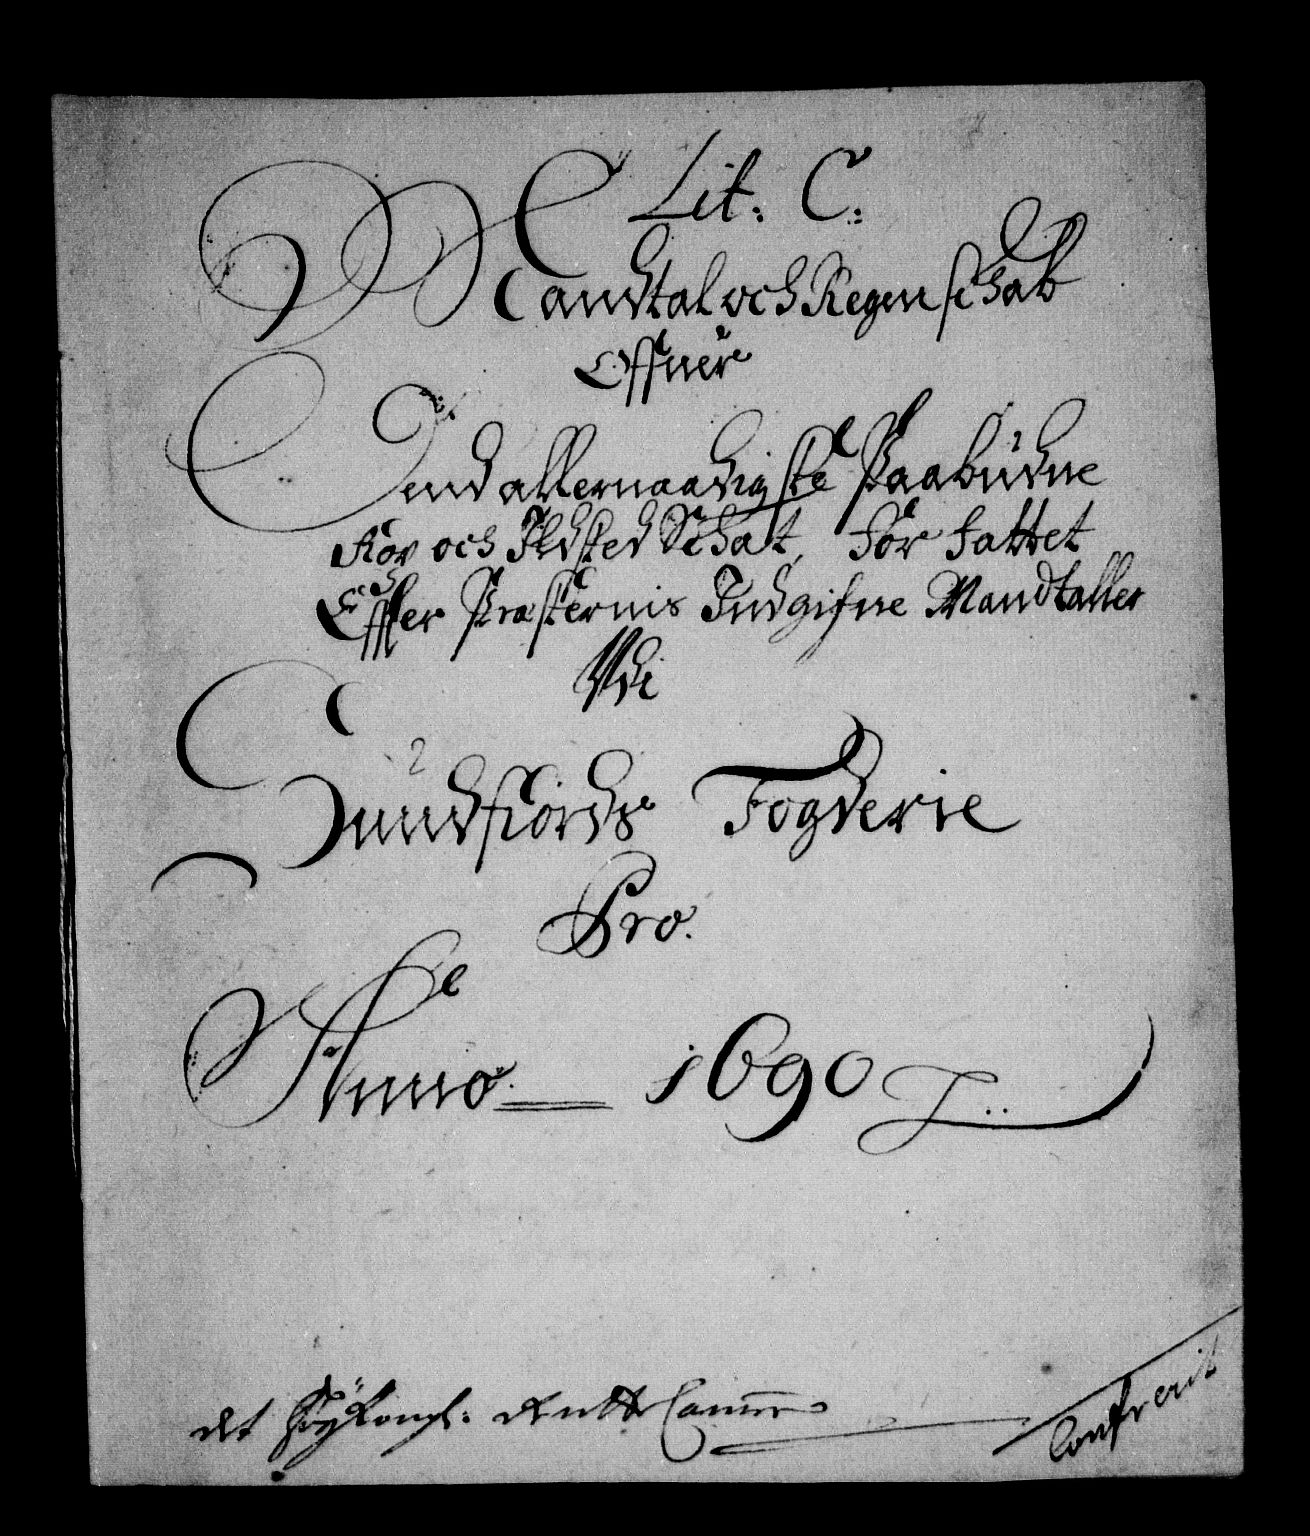 Lit: C:
Mandtal och Regenschab
Offuer
Dend allernaadigste Paabudne
Roy och Ildsted Schat, for fattet
Effter Præsternis Indgifne Mandtaller
Udi
Sundfiords Fogderie
Pro.
Anno 1690
det Høy Kongl: Rentte Cammer
Confrerit